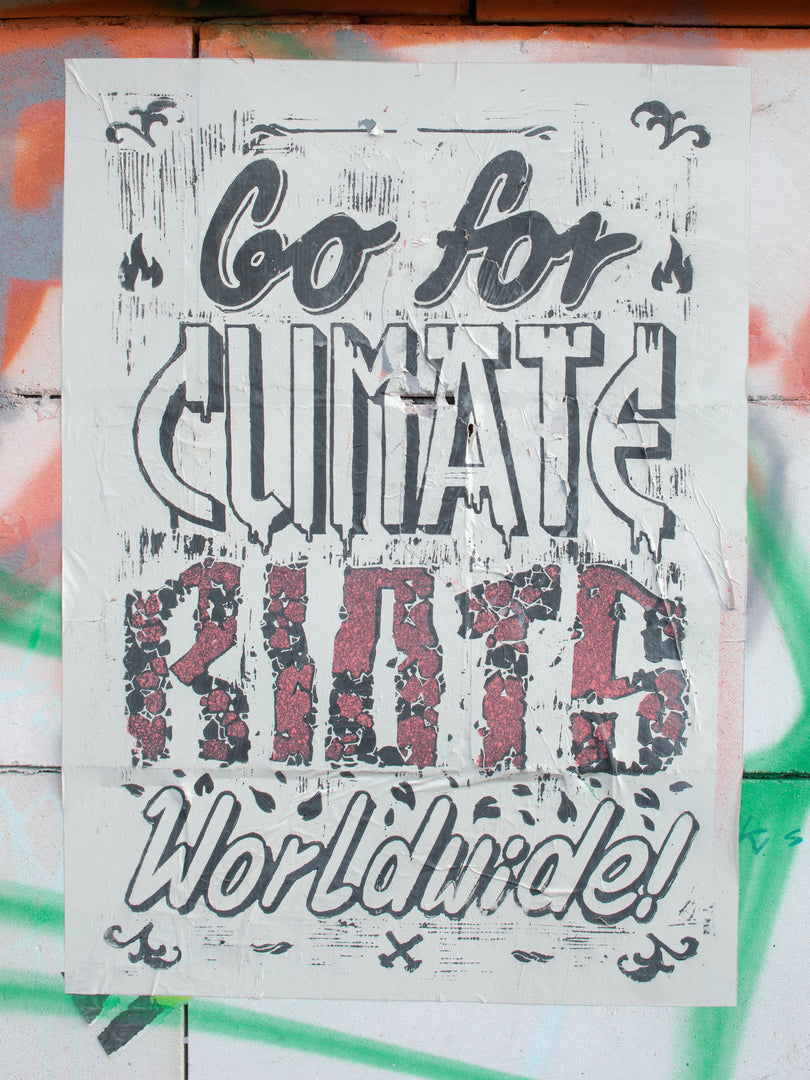 Go for
CLIMATE
RIOTS
Worldwide!